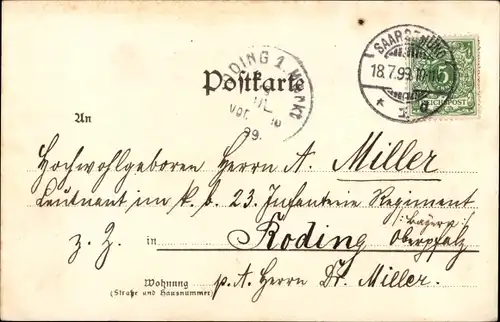 SAARGEMÜND
18.7.99. 10-11
5
REICHSPOST
RODING 1. Markt
VOR
99.
Postkarte
An
Hochwohlgeboren Herrn A. Miller
Leutnant im k. b. 23. Infanterie Regiment
z. Z. in Roding Oberpfalz
Bayern
Wohnung p. A. Herrn Dr. Miller.
(Straße und Hausnummer)